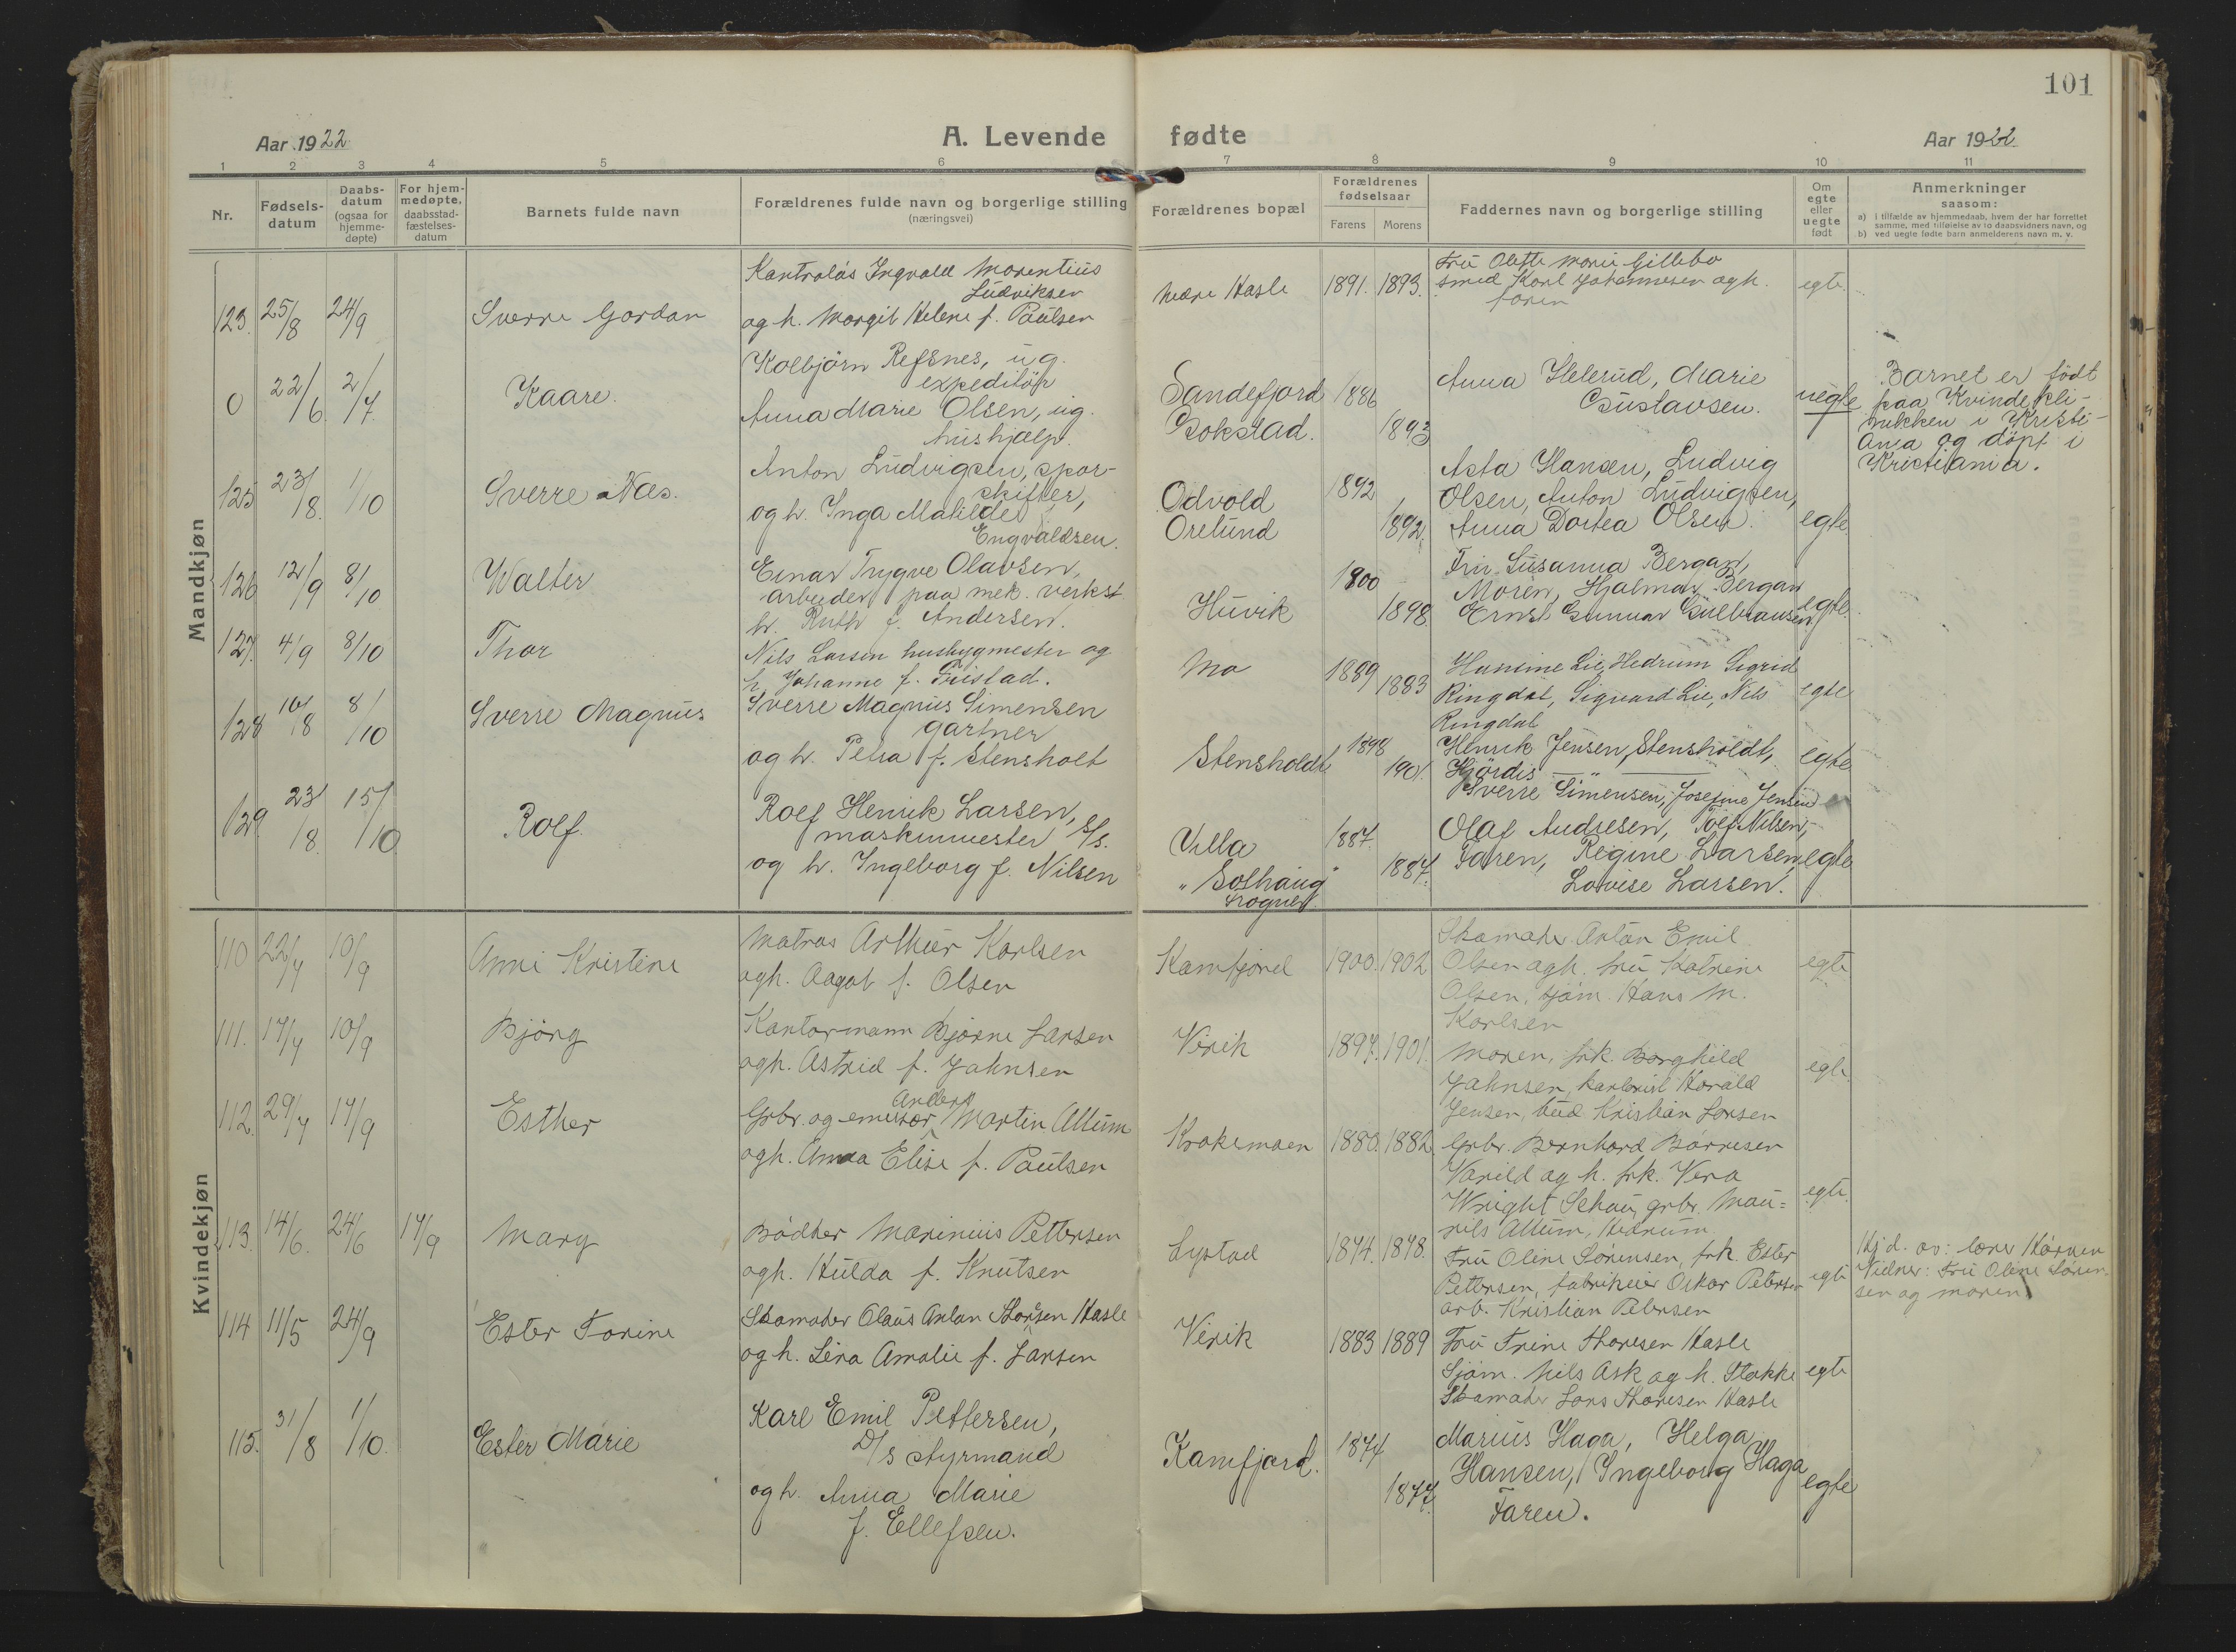 101
Aar 1922
A. Levende fødte
Aar 1922
1 2 3 4 5 6 7 8 9 10 11
Nr.
Fødsels-
datum
Daabs-
datum
(ogsaa for
hjemme-
døpte)
For hjem-
medøpte,
daabsstad-
fæstelses-
datum
Barnets fulde navn
Forældrenes fulde navn og borgerlige stilling
(næringsvei)
Forældrenes bopæl
Forældrenes
fødselsaar
Farens Morens
Faddernes navn og borgerlige stilling
Om
egte
eller
uegte
født
Anmerkninger
saasom:
a) i tilfælde av hjemmedaab, hvem der har forrettet
samme, med tilføielse av to daabsvidners navn, og
b) ved uegte fødte barn anmelderens navn m. v.
Mandkjøn
123. 25/8 24/9
Sverre Gordon
Ingvald Morentius
Ludviksen
og h. Margit Helene f. Paulsen
Hasle 1891. 1893.
Fru Olette Marie Gillebo
smed Karl Johannesen og h.
faren
egte.
0 22/6. 2/7.
Kaare.
Kolbjörn Refsnes, ug.
expeditör
Anna Marie Olsen, ug.
hushjælp.
Sandefjord 1886
Gokstad. 1893
Anna Helerud, Marie
Gustavsen.
uegte
Barnet er født
paa Kvindekli-
nikken i Kristi-
ania og döpt i
Kristiania.
125 23/8. 1/10
Sverre Næs.
Anton Ludvigsen, spor-
skifter,
og h. Inga Matilde
Engvaldsen.
Odvold 1892
Orelund 1892.
Asta Hansen, Ludvig
Olsen, Anton Ludvigsen,
Anna Dortea Olsen.
egte.
126 12/9 8/10
Walter
Einar Trygve Olavsen,
arbeider paa mek. verkst.
h. Ruth f. Andersen.
Huvik 1900 1898.
Fru Susanna Bergan,
Moren, Hjalmar Bergan
Ernst Gunnar Gulbransen.
egte.
127. 4/9 8/10
Thor
Nils Larsen husbygmester og
h. Johanne f. Fristad.
Mo 1889 1883
Hanine Lie, Hedrum Sigrid
Ringdal, Sigvard Lie, Nils
Ringdal
egte
128 10/8 8/10
Sverre Magnus
Sverre Magnus Simensen
gartner
og h. Petra f. Stensholt
Stensholdt 1898 1901.
Henrik Jensen, Stensholdt,
Hjördis — " —
Sverre Simensen, Josefine Jensen
egte
129 23/8. 15/10.
Rolf.
Rolf Henrik Larsen,
maskinmester S/s.
og h. Ingeborg f. Nilsen
Villa 1887.
"Solhaug" 1887.
Olaf Andresen, Nilsen,
Faren, Regine Larsen,
Lovise Larsen.
egte
Kvindekjøn
110 22/7 10/9
Anni Kristine
Matros Arthur Karlsen
og h. Aagot f. Olsen
Kamfjord 1900. 1902
Skomaker Anton Emil
Olsen og h. fru Katrine
Olsen, sjöm. Hans M.
Karlsen
egte
111. 17/7 10/9
Bjørg
Kontormann Bjarne Larsen
og h. Astrid f. Jahnsen
Virik 1897. 1901.
Moren, frk. Borghild
Jahnsen, Harald
Jensen, bud Kristian Larsen
egte.
112. 29/7 17/9
Esther
Anders
Gbr. og emissær Martin Allum
og h. Anna Elise f. Paulsen
Krokemoen 1880. 1882.
Gbr. Bernhard Børresen
Varild og h. frk. Vera
Wright Schau, gbr. Mau=
rits Allum, Hedrum
egte.
113. 14/6. 24/6 17/9
Mary
Bødker Marinius Pettersen
og h. Hulda f. Knutsen
Lystad 1874. 1878.
Fru Oline Sørensen, frk. Ester
Pettersen, fabrikeier Oskar Petersen
arb. Kristian Petersen
egte
Hj. d. av: lærer
Vidner: Fru Oline Søren-
sen og moren
114 11/5 24/9
Ester Torine
Skomaker Olaus Anton Thoresen Hasle
og h. Lina Amalie f. Larsen
Virik 1883 1889
Fru Trine Thoresen Hasle
Sjöm. Nils Ask og h. Stokke
Skomaker Lars Thoresen Hasle
egte
115. 31/8 1/10.
Ester Marie
Karl Emil Pettersen,
D/s styrmand
og h. Anna Marie
f. Ellefsen.
Kamfjord. 1874 1877.
Marius Haga, Helga
Hansen, Ingeborg Haga
Faren.
egte